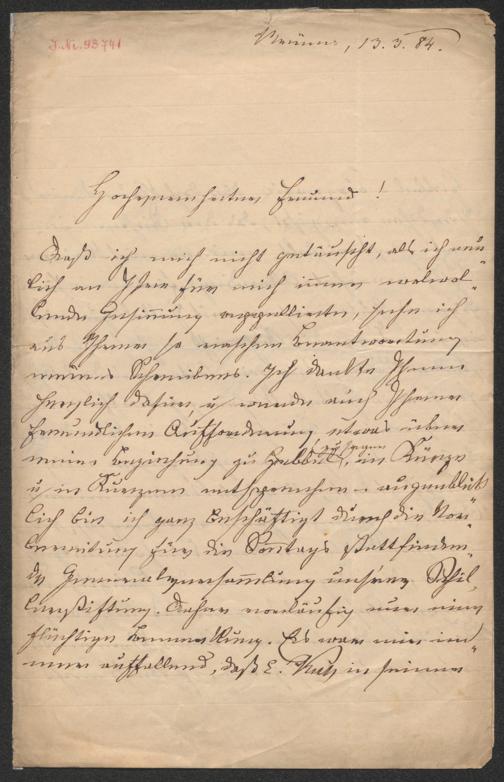 J. Nr. 93741
Brünn, 13. 3. 84.
Hochverehrter Freund!
Daß ich mich nicht getäuscht, als ich neu-
lich an Ihre für mich immer wolwol-
lende Gesinnung appellierte, sehe ich
aus Ihrer so raschen Beantwortung
meines Schreibens. Ich danke Ihnen
herzlich dafür, u werde auch Ihrer
freundlichen Aufforderung etwas über
meine Beziehung zu Hebbel zu sagen, in Kürze
u in Kurzem entsprechen – augenblick-
lich bin ich ganz beschäftigt durch die Vor-
bereitung für die Sontags stattfinden-
de Generalversammlung unsrer Schil-
lerstiftung. Daher vorläufig nur eine
flüchtige Bemerkung. Es war mir im-
mer auffallend, daß E. Kuh in seiner